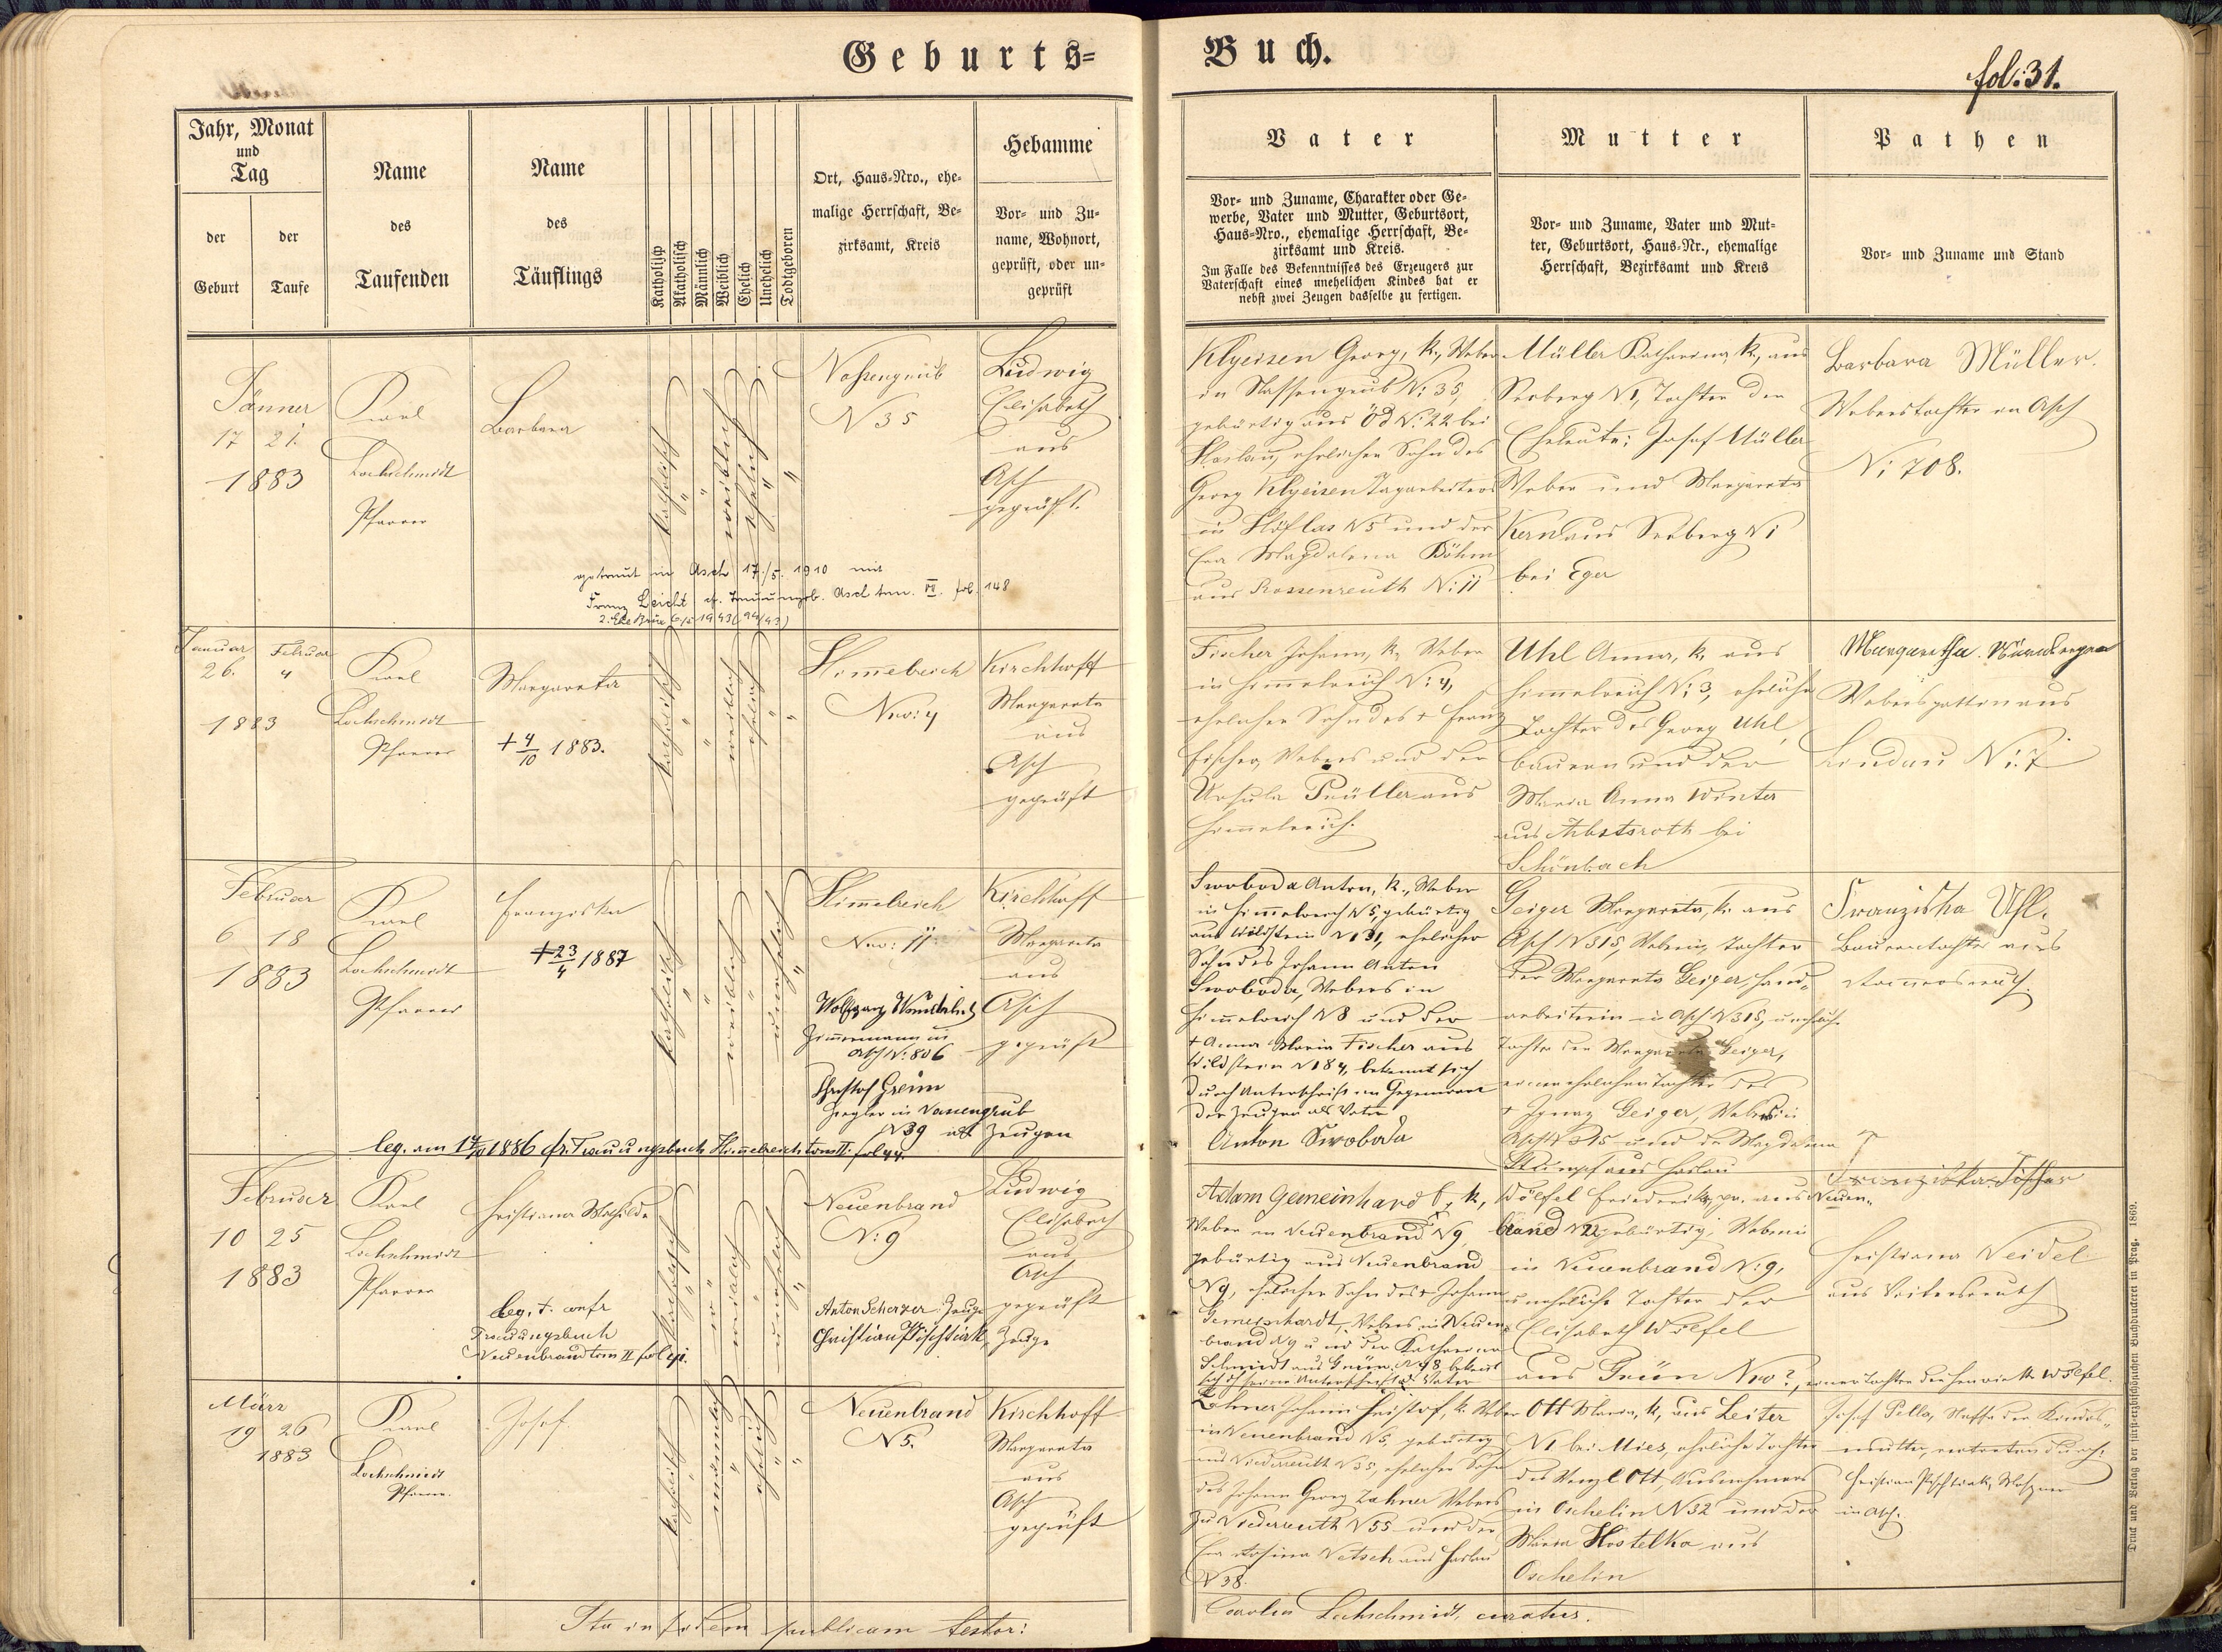 Geburts=
Buch.
fol: 31.
Jahr, Monat
und
Tag
der
Geburt
der
Taufe
Name
des
Taufenden
Name
des
Täuflings
Katholisch
Akatholisch
Männlich
Weiblich
Ehelich
Unehelich
Todtgeboren
Ort, Haus-Nro., ehe-
malige Herrschaft, Be-
zirksamt, Kreis
Hebamme
Vor- und Zu-
name, Wohnort,
geprüft, oder un-
geprüft
Vater
Vor- und Zuname, Charakter oder Ge-
werbe, Vater und Mutter, Geburtsort,
Haus-Nro., ehemalige Herrschaft, Be-
zirksamt und Kreis.
Im Falle des Bekenntnisses des Erzeugers zur
Vaterschaft eines unehelichen Kindes hat er
nebst zwei Zeugen dasselbe zu fertigen.
Mutter
Vor- und Zuname, Vater und Mut-
ter, Geburtsort, Haus-Nr., ehemalige
Herrschaft, Bezirksamt und Kreis
Pathen
Vor- und Zuname und Stand
Jänner
17 21.
1883
Karl
Lochschmidt
Pfarrer
Barbara
katholisch
weiblich
ehelich
Nassengrub
N 35
Ludwig
Elisabeth
aus
Asch
geprüft.
getraut in Asch 17./5. 1910 mit
Franz Leicht cf. Trauungsb. Asch tom. VI. fol. 148
Klyeisen Georg, k., Weber
in Nassengrub N: 35,
gebürtig aus Öd N: 22 bei
Haslau, ehelicher Sohn des
Georg Klyeisen Tagarbeiters
in Höflas N 5 und der
Eva Magdalena Böhm
aus Rossenreuth N: 11
Müller Katharina, k., aus
Seeberg N 1, Tochter der
Eheleute: Josef Müller
Weber und Margareta
Kern aus Seeberg N 1
bei Eger
Barbara Müller.
Weberstochter in Asch
N: 708.
Januar Februar
26. 4
1883
Karl
Lochschmidt
Pfarrer
Margareta
+ 4/10 1883.
katholisch
weiblich
ehelich
Himelreich
Nro: 4
Kirchhoff
Margareta
aus
Asch
geprüft
Fischer Johann, k., Weber
in Himmelreich N: 4,
ehelicher Sohn des + Franz
Fischer, Webers und der
Ursula
Himmelreich.
Uhl Anna, k. aus
Himmelreich N: 3, eheliche
Tochter des Georg Uhl,
Bauern und der
Maria Anna Winter
aus Absroth bei
Schönbach
Margaretha
Webersgattin aus
Lindau N: 7
Februar
6 18
1883
Karl
Lochschmidt
Pfarrer
Franziska
+ 23/4 1887
katholisch
weiblich
unehelich
Himelreich
Nro: 11
Kirchhoff
Margareta
aus
Asch
geprüft
Wolfgang Wunderlich
Zimmermann in
Asch N: 806
Christof Greim
Ziegler in Nassengrub
N 39 als Zeugen
Swoboda Anton, k., Weber
in Himmelreich N 5, gebürtig
aus Wildstein N 131, ehelicher
Sohn des Johann Anton
Swoboda, Webers in
Himmelreich N 8 und der
+ Anna Maria Fischer aus
Wildstein N 184, bekennt sich
durch Unterschrift in Gegenwart
der Zeugen als Vater
Anton Swoboda
Geiger Margareta, k. aus
Asch N 315, Weberin, Tochter
der Margareta Geiger, Hand-
arbeiterin in Asch N 315, unehel.
Tochter der Margareta Geiger,
einer ehelichen Tochter des
+ Ignaz Geiger, Webers in
Asch N 315 und der Magdalena
aus Haslau
Franziska Uhl,
Bauerntochter aus
Franziska Fischer
Februar
10 25
1883
Karl
Lochschmidt
Pfarrer
Christiana Mathilde
katholisch
weiblich
unehelich
Neuenbrand
N: 9
Ludwig
Elisabeth
aus
Asch
geprüft
leg. t. confr
Trauungsbuch
Neuenbrand tom II fol
Anton Scherzer Zeuge
Christian Pischtiak, Zeuge
Adam Gemeinhardt, k.,
Weber in Neuenbrand N 9
gebürtig aus Neuenbrand
N 9, ehelicher Sohn des + Johann
Gemeinhardt, Webers in Neuen-
brand N 9 und der Katharina
Schmidt aus Grün N 48 bekennt
sich Unterschrift als Vater
Wölfel Friederika, pr. aus Neuen-
brand N 22 gebürtig, Weberin
in Neuenbrand N: 9,
uneheliche Tochter der
Elisabeth Wölfel
aus Grün Nro ?, einer Tochter der Henriette Wölfel.
Christiana Weidel
aus
März
19 26
1883
Karl
Lochschmidt
Pfarrer.
Josef
katholisch
männlich
ehelich
Neuenbrand
N 5.
Kirchhoff
Margareta
aus
Asch
geprüft
Zahner Johann Christof, k. Weber
in Neuenbrand N 5, gebürtig
aus Niederreuth N 55, ehelicher Sohn
des Johann Georg Zahner Webers
zu Niederreuth N 55 und der
Eva Rosina Netsch aus Haslau
N 38.
Ott Maria, k., aus Leiter
N 1 bei Mies, eheliche Tochter
des Wenzl Ott, Ausnehmers
in Oschelin N 32 und der
Maria Kostelka aus
Oschelin
Josef Pella, Neffe der Kindes-
mutter, vertreten durch:
Christian Pischtiak, Messner
in Asch.
Ita in fidem publicam testor:
Carolus Lochschmidt, curatus.
Druck und Verlag der fürst-erzbischöflichen Buchdruckerei in Prag. 1869.